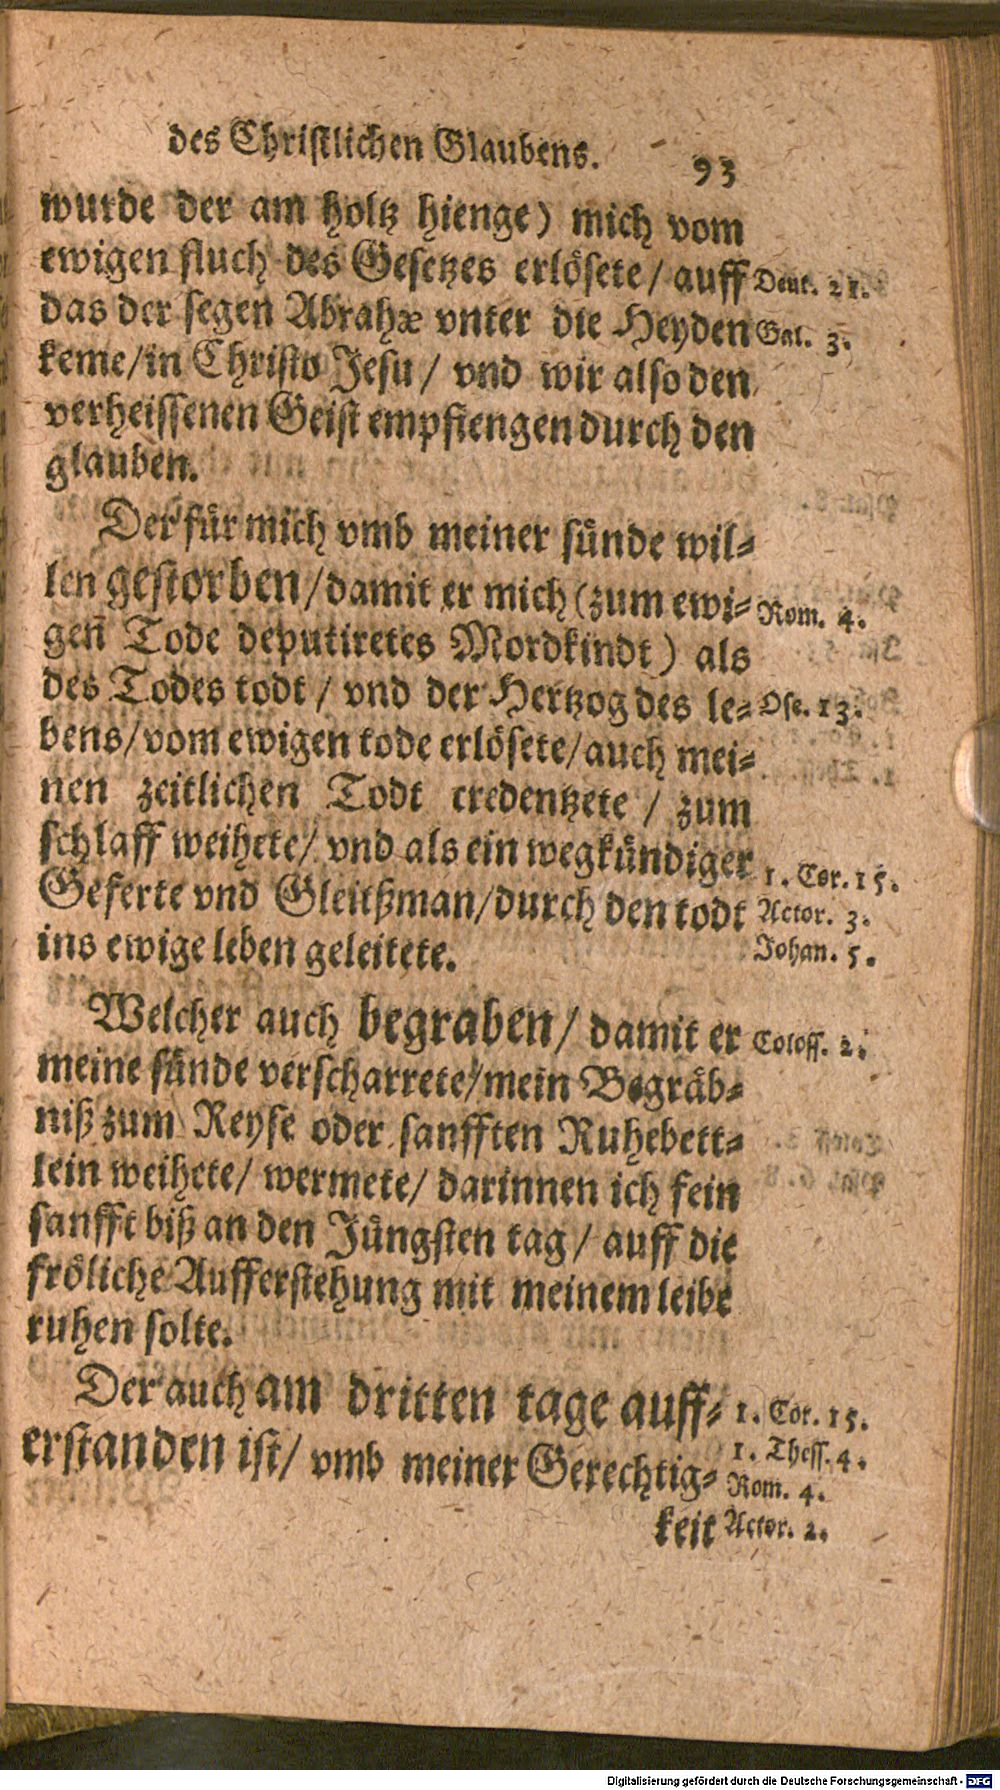 des Christlichen Glaubens. 93
wurde der am holtz hienge) mich vom
ewigen fluch des Gesetzes erlösete / auff Deut. 21.
das der segen Abrahæ vnter die Heyden Gal. 3.
keme/in Christo Jesu / vnd wir also den
verheissenen Geist empfiengen durch den
glauben.
Der für mich vmb meiner sünde wil-
len gestorben /damit er mich (zum ewi- Rom. 4.
gen Tode deputiretes Mordkindt) als
des Todes todt / vnd der Hertzog des le- Ose. 13.
bens/vom ewigen tode erlösete/auch mei-
nen zeitlichen Todt credentzete / zum
schlaff weihete/ vnd als ein wegkündiger 1. Cor. 15.
Geferte vnd Gleitßman/durch den todt Actor. 3.
ins ewige leben geleitete. Johan. 5.
Welcher auch begraben / damit er Coloss. 2.
meine sünde verscharrete/mein Begräb-
niß zum Reyse oder sanfften Ruhebett-
lein weihete/ wermete/ darinnen ich fein
sanfft biß an den Jüngsten tag / auff die
fröliche Aufferstehung mit meinem leibe
ruhen solte.
Der auch am dritten tage auff- 1. Cor. 15.
erstanden ist/ vmb meiner Gerechtig- 1. Thess. 4.
Rom. 4.
keit Actor. 2.
Digitalisierung gefördert durch die Deutsche Forschungsgemeinschaft - DFG